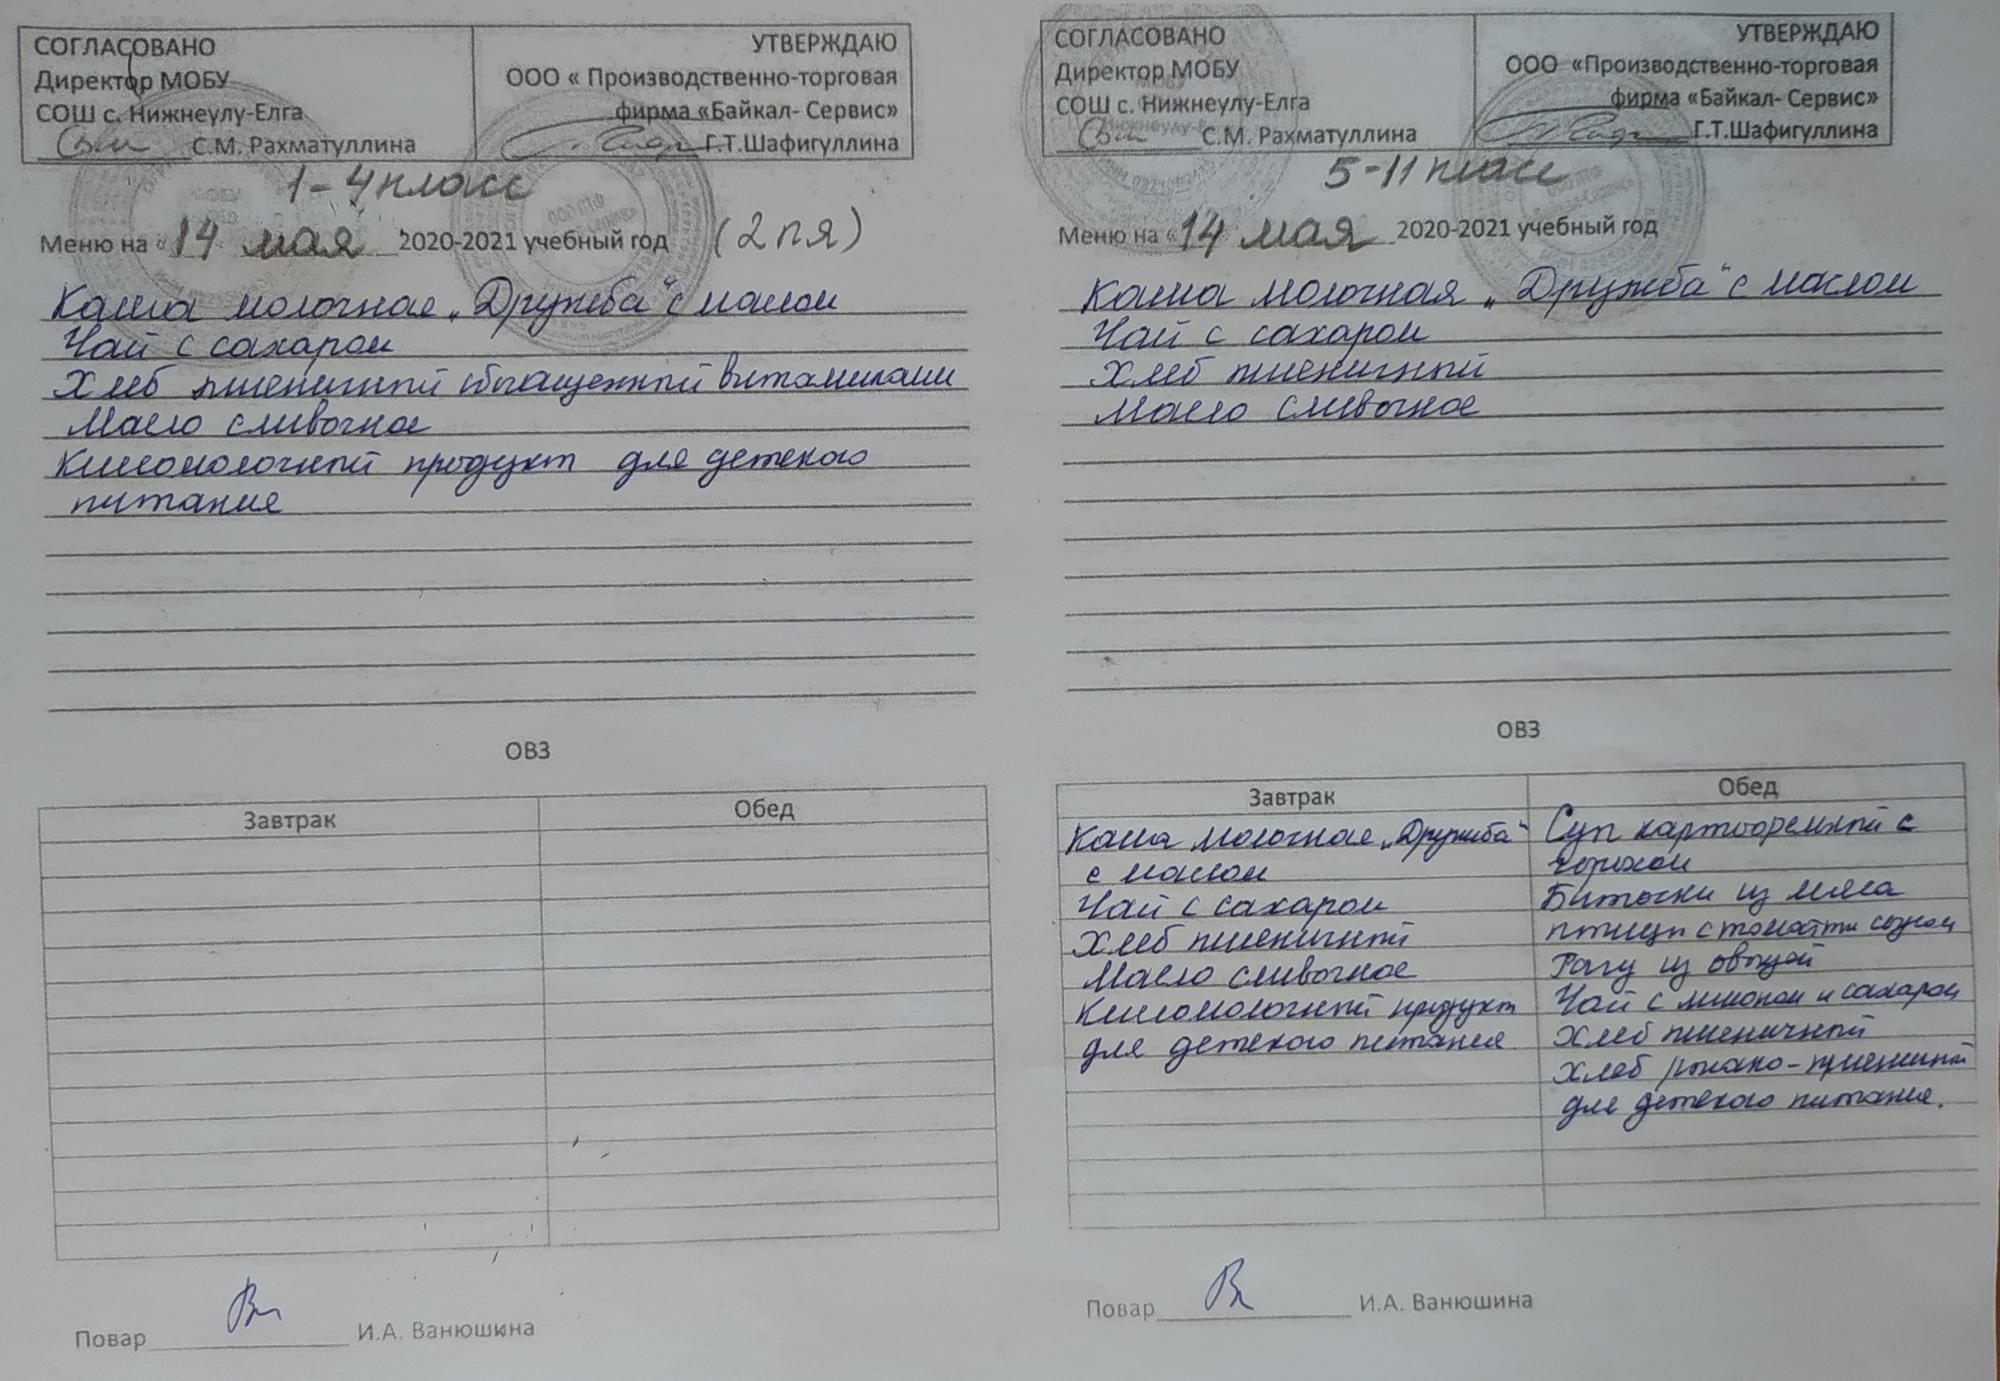 СОГЛАСОВАНО
Директор МОБУ
СОШ с. Нижнеулу-Елга
С.М. Рахматуллина
УТВЕРЖДАЮ
ООО « Производственно-торговая
фирма «Байкал- Сервис»
Г.Т.Шафигуллина
1-4 класс
Меню на «14 мая 2020-2021 учебный год (2 пя)
Каша молочная „Дружба“ с маслом
Чай с сахаром
Хлеб пшеничный обогащенный витаминами
Масло сливочное
Кисломолочный продукт для детского
питания
ОВЗ
Завтрак
Обед
Повар И.А. Ванюшина
СОГЛАСОВАНО
Директор МОБУ
СОШ с. Нижнеулу-Елга
С.М. Рахматуллина
УТВЕРЖДАЮ
ООО «Производственно-торговая
фирма «Байкал- Сервис»
Г.Т.Шафигуллина
5-11 класс
Меню на «14 мая 2020-2021 учебный год
Каша молочная „Дружба“ с маслом
Чай с сахаром
Хлеб пшеничный
Масло сливочное
ОВЗ
Завтрак
Каша молочная „Дружба“
с маслом
Чай с сахаром
Хлеб пшеничный
Масло сливочное
Кисломолочный продукт
для детского питания
Обед
Суп картофельный с
горохом
Биточки из мяса
птицы с томатн соусом
Рагу из овощей
Чай с лимоном и сахаром
Хлеб пшеничный
Хлеб ржано-пшеничный
для детского питания.
Повар И.А. Ванюшина